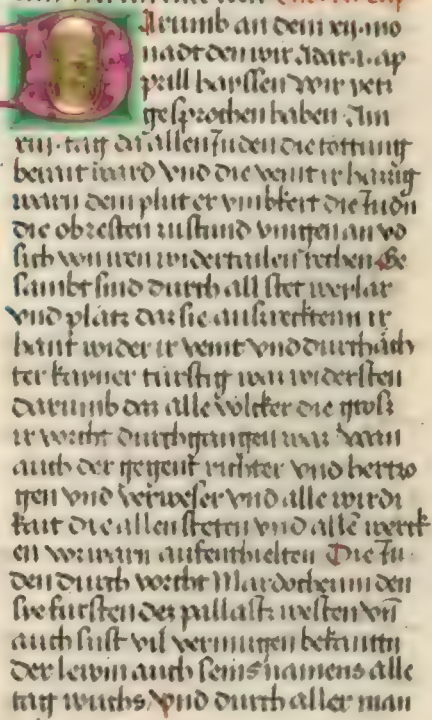 Darumb an dem xij mo
nadt den wir Adar · i · ap
prill haissen wir vett
gesprochen haben Am
xiij · tag da allen Juden die tottung
berait ward vnd die veint ir hawg
warn dem plut er vmbkert die Judn
die obresten zustund vingen an vo
sich von iren widertailen rechen Ge
sambt sind durch all stet
vnd platz das sie ausreckten ir
hant wider ir veint vnd durchäch
ter kayner türstig was widersten
darumb das alle völcker die gross
ir vorcht durchgangen was Wan
auch der gegent richter vnd hertzo
gen vnd verweser vnd alle wirdi
kait die allen steten vnd alle werck
en vor warn aufenthielten Die Ju
den durch vorcht Mardocheum den
sie fursten des pallast westen vn
auch sust vil vermugen bekantn
der lewm auch seins namens alle
tag wuchs vnd durch aller man